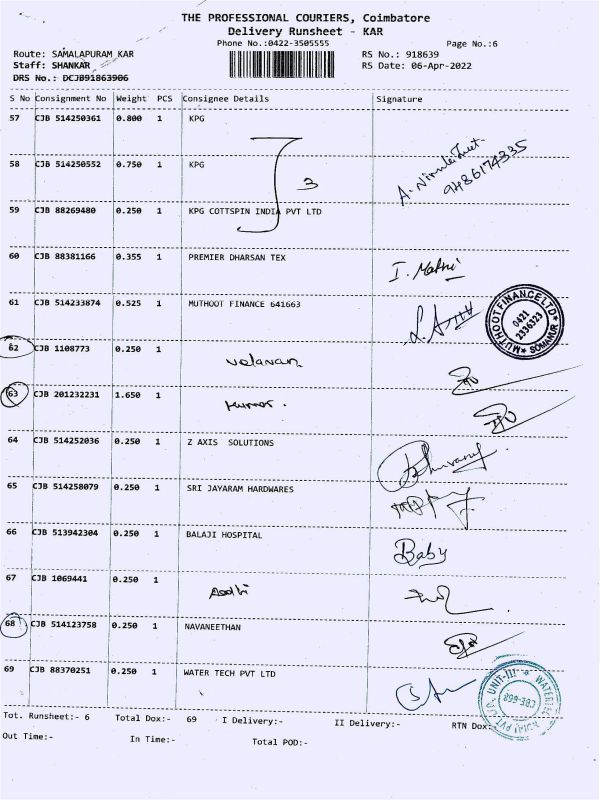 THE PROFESSIONAL COURIERS, Coimbatore
Delivery Runsheet - KAR
Phone No.:0422-3505555 Page No.:6
Route: SAMALAPURAM KAR RS No.: 918639
Staff: SHANKAR RS Date: 06-Apr-2022
DRS No.: DCJB91863906
S No Consignment No Weight PCS Consignee Details Signature
57 CJB 514250361 0.800 1 KPG
58 CJB 514250552 0.750 1 KPG
3
9486174335
59 CJB 88269480 0.250 1 KPG COTTSPIN INDIA PVT LTD
60 CJB 88381166 0.355 1 PREMIER DHARSAN TEX I. Mathi
61 CJB 514233874 0.525 1 MUTHOOT FINANCE 641663
MUTHOOT FINANCE LTD SOMANUR
0421
2336323
62 CJB 1108773 0.250 1 Velavan
63 CJB 201232231 1.650 1 Kumar .
64 CJB 514252036 0.250 1 Z AXIS SOLUTIONS
65 CJB 514258079 0.250 1 SRI JAYARAM HARDWARES
66 CJB 513942304 0.250 1 BALAJI HOSPITAL Baby
67 CJB 1069441 0.250 1 Aadhi
68 CJB 514123758 0.250 1 NAVANEETHAN
69 CJB 88370251 0.250 1 WATER TECH PVT LTD
UNIT-III
CBE-668
Tot. Runsheet:- 6 Total Dox:- 69 I Delivery:- II Delivery:- RTN Dox:-
Out Time:- In Time:- Total POD:-